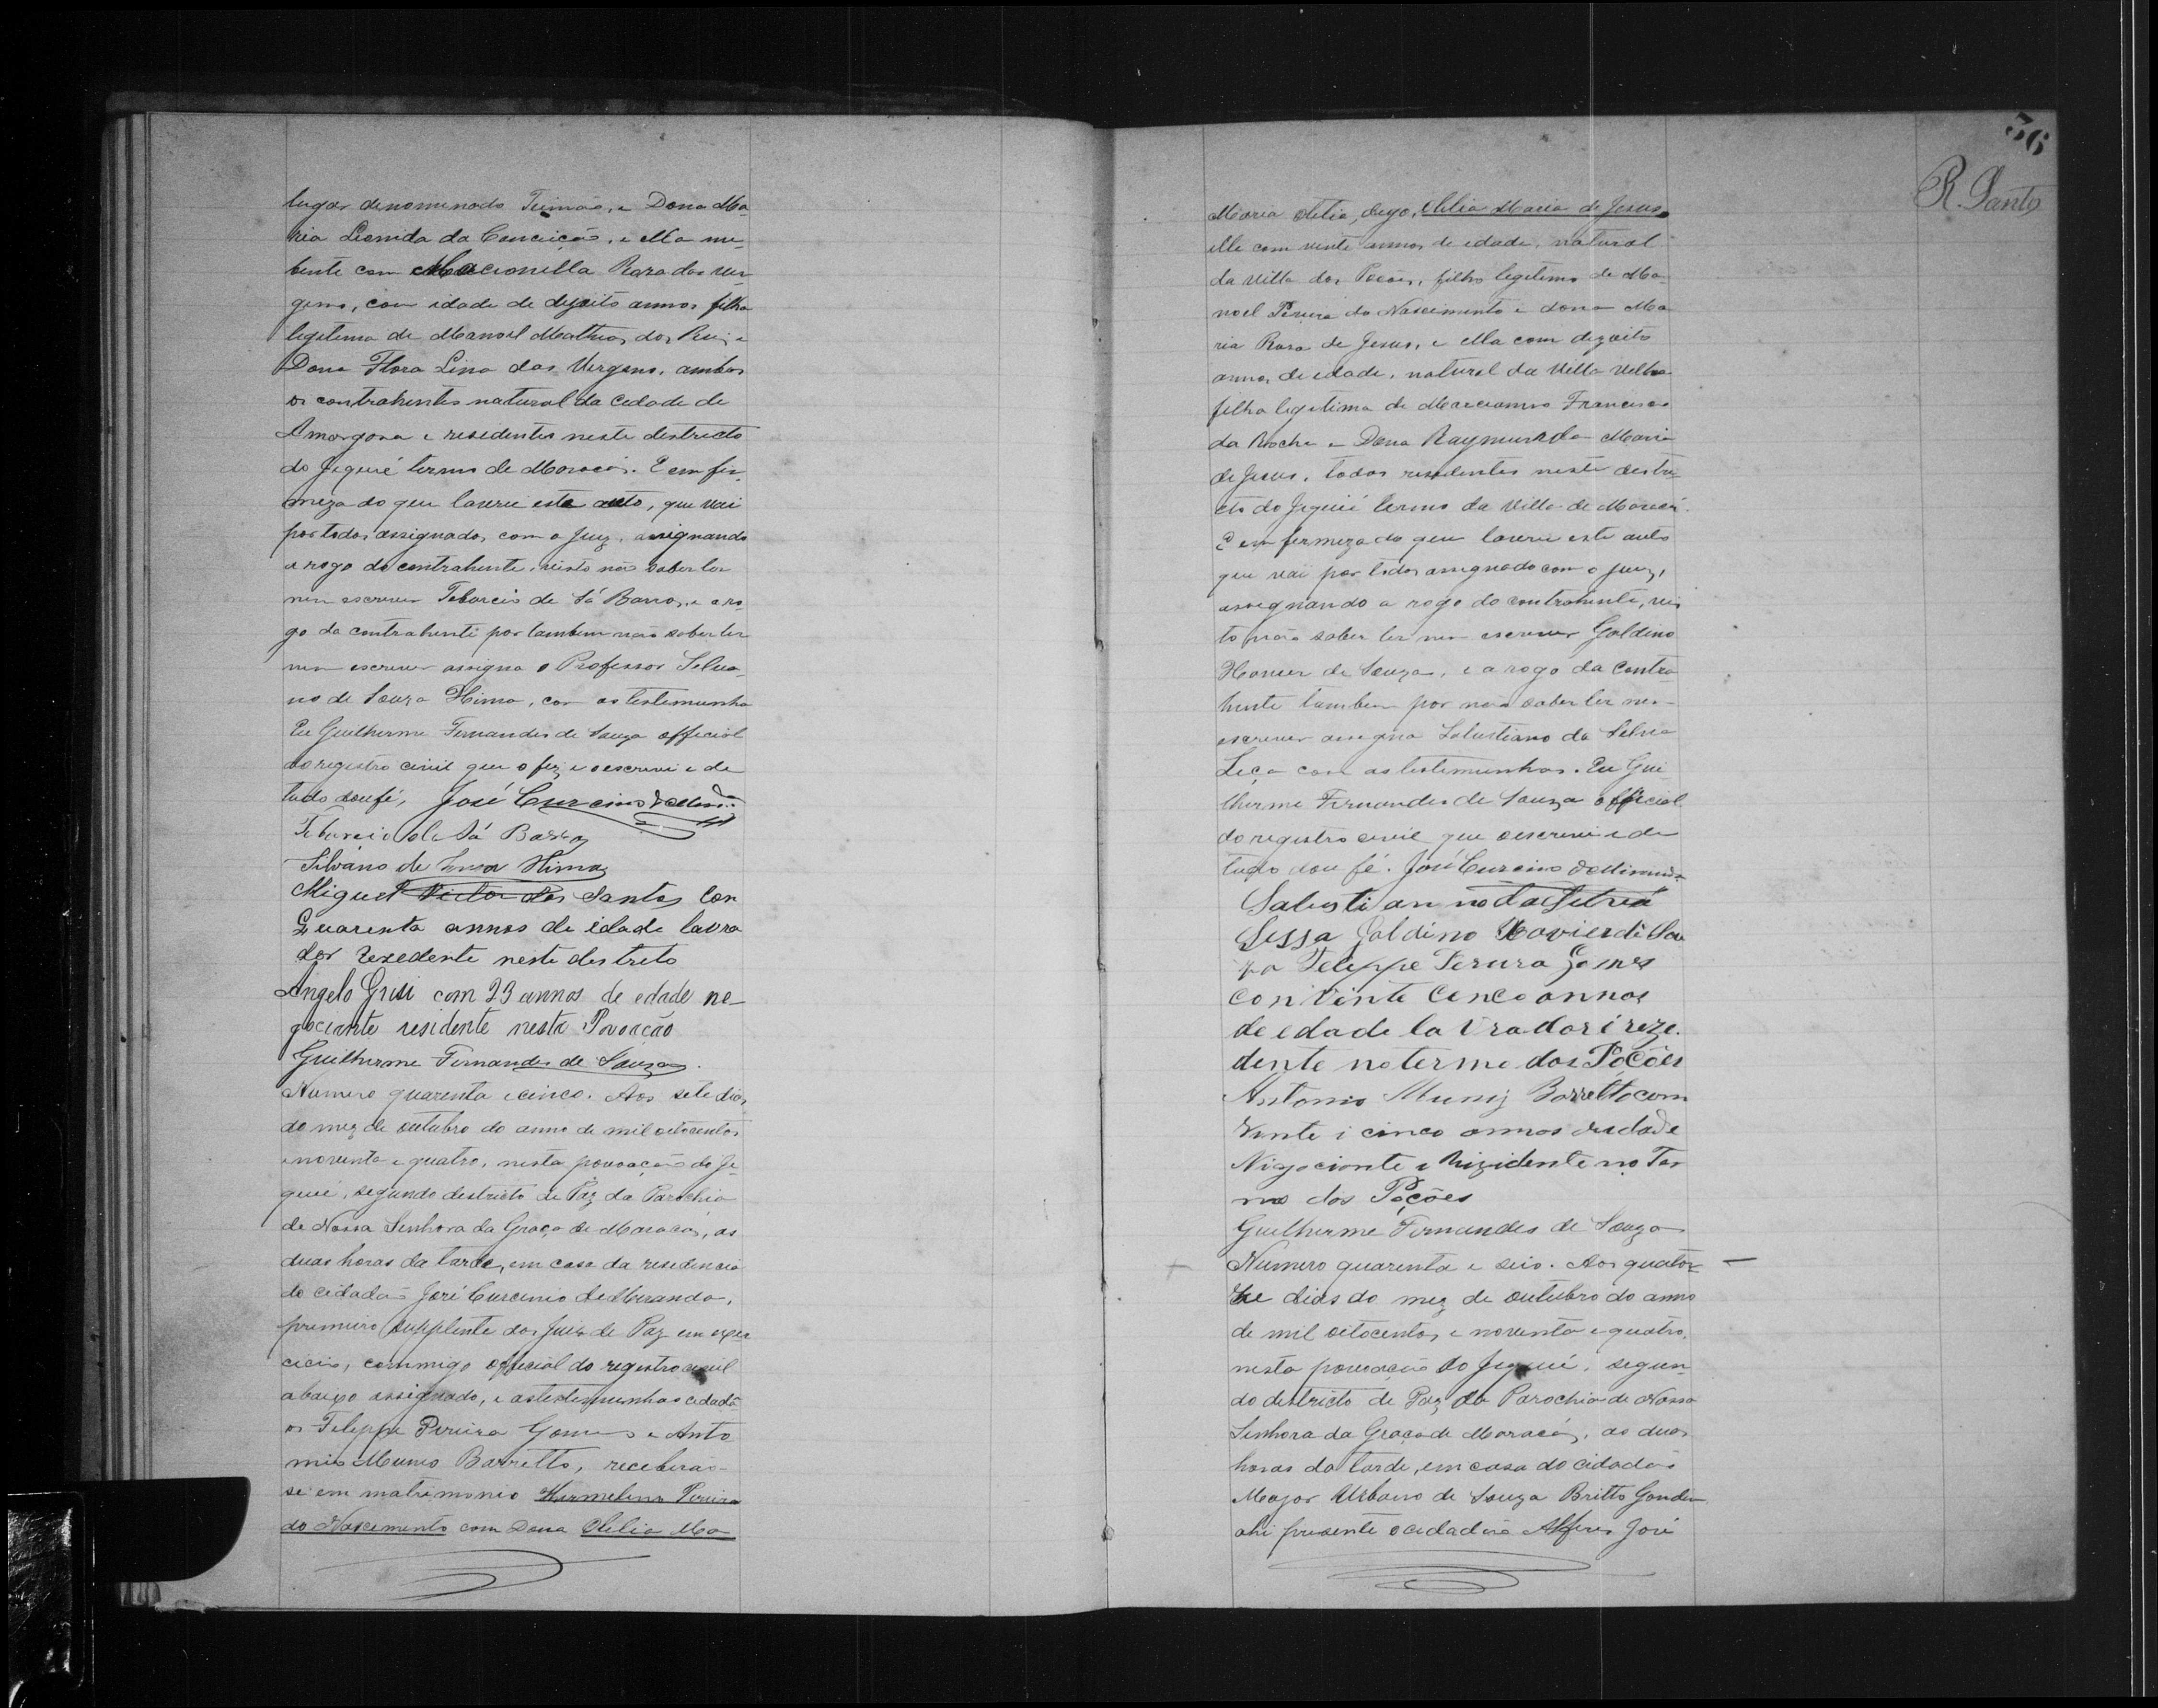 lugar denominado Timão, e Dona Ma-
ria Leonida da Conceição, e ella me-
bente com Marcionilla Roza das Ver-
gens, com idade de dezoito annos filha
legitima de Manoel Mathias dos Reis, e
Dona Flora Lina das Virgens, ambos
os contrahentes natural da Cidade de
Amargosa e residentes neste destricto
do Jequié termo de Maracás. E em fir-
meza do que lavrei este auto, que vai
por todos assignados, com o Juiz, assignando
a rogo do contrahente, visto não saber ler
nem escrever Teburcio de Sá Barros, e a ro-
go da contrahente por tambem não saber ler
nem escrever assigna o Professor Silva-
no de Souza Hima, com as testemunha
Eu Guilherme Fernandes de Souza official
do registro civil que o fiz e o escrevi e de
tudo dou fé, José Curcino de Miranda
Teburcio de Sá Barros
Silvano de Souza Hima
Miguel Victor dos Santos Con
Quarenta annos de idade lavra
dor rezedente neste destreto
Angelo Grisi com 23 annos de edade ne-
gociante residente nesta Povoação
Guilherme Fernandes de Souza.
Numero quarenta e cinco. Aos sete dias
do mez de outubro do anno de mil oitocentos
e noventa e quatro, nesta povoação do Je-
quié, segundo destricto de Paz da Parochia
de Nossa Senhora da Graça de Maracás, as
duas horas da tarde, em casa da residencia
do cidadão José Curcinio de Miranda,
premeiro supplente dos Juiz de Paz em exer
cicio, commigo official do registro civil
abaixo assignado, e as testemunhas cidadã
os Felippe Pereira Gomes e Anto
nio Munis Barretto, receberão-
se em matrimonio Hermelino Pereira
do Nascimento com Dona Otilia Ma-
36
R. Santos
Maria Otilia, digo, Otilia Maria de Jesus,
elle com vinte annos de edade, natural
da Villa dos Poções, filho legitimo de Ma-
noel Pereira do Nascimento e dona Ma
ria Roza de Jesus, e ella com dezoito
annos de edade, natural da Villa Velha
filha legitima de Marcianno Francisco
da Rocha e Dona Raymunda Maria
de Jesus, todos residentes neste destri-
cto do Jequié termo da Villa de Maracás.
E em fermeza do que lavrei este auto
que vai por todos assignado com o Juiz,
assegnando a rogo do contrahente, vis
to não saber ler nem escrever Galdino
Xavier de Souza, e a rogo da contra-
hente tambem por não saber ler nem
escrever assigna Salustiano da Silva
Leça com as testemunhas. Eu Gui
lherme Fernandes de Souza official
do registro civil que o escrevi e de
tudo dou fé. José Curcino de Miranda
Salusti an no da Silva
Lessa Galdino Xavier di Sou
za Felippe Perura Gomes
con Vinte Cenco annos
de edade la vrador i reze.
dente no termo dos Poções
Antonio Muniz Barretto com
Vinte i cinco annos de edade
Nigociante e Rizidente no Ter
mo dos Poções
Guilherme Fernandes de Souza
Numero quarenta e seis. Aos quator-
ze dias do mez de outubro do anno
de mil oitocentos e noventa e quatro,
nesta povoação do Jequié, segun-
do destricto de Paz da Parochia de Nossa
Senhora da Graça de Maracás, as duas
horas da tarde, em casa do cidadão
Major Urbano de Souza Britto Gondim
ahi presente o cidadão Alferes José